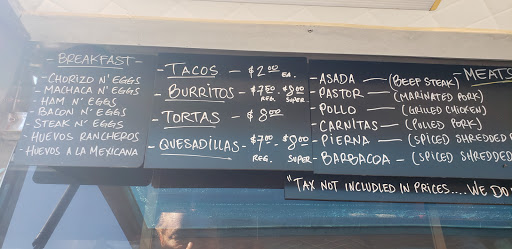 - BREAKFAST -
- CHORIZO N' EGGS
- MACHACA N' EGGS
- HAM N' EGGS
- BACON N' EGGS
- STEAK N' EGGS
- HUEVOS RANCHEROS
- HUEVOS A LA MEXICANA
- TACOS - $2.00 EA.
- BURRITOS - $7.00 REG. $8.00 SUPER
- TORTAS - $8.00
- QUESADILLAS - $7.00 REG. - $8.00 SUPER
- MEATS
- ASADA — (BEEF STEAK)
- PASTOR — (MARINATED PORK)
- POLLO — (GRILLED CHICKEN)
- CARNITAS — (PULLED PORK)
- PIERNA — (SPICED SHREDDED P
- BARBACOA — (SPICED SHREDDED
"TAX NOT INCLUDED IN PRICES.... WE DO